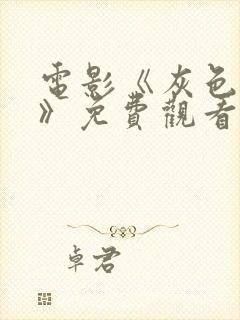 電影《灰色
》免費觀看
卓君